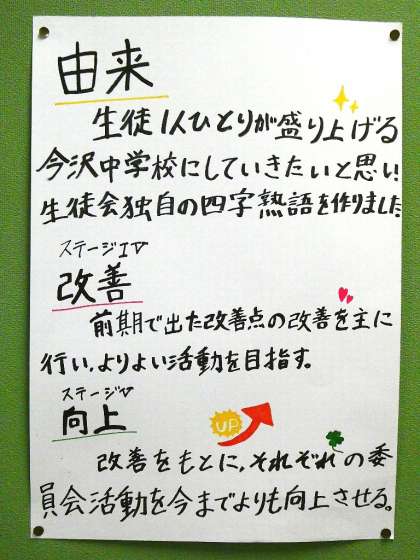 由来
生徒1人ひとりが盛り上げる
今沢中学校にしていきたいと思い!
生徒会独自の四字熟語を作りました
ステージⅣ
改善
前期で出た改善点の改善を主に
行い、よりよい活動を目指す。
ステージⅤ
向上
UP
改善をもとに、それぞれの委
員会活動を今までよりも向上させる。